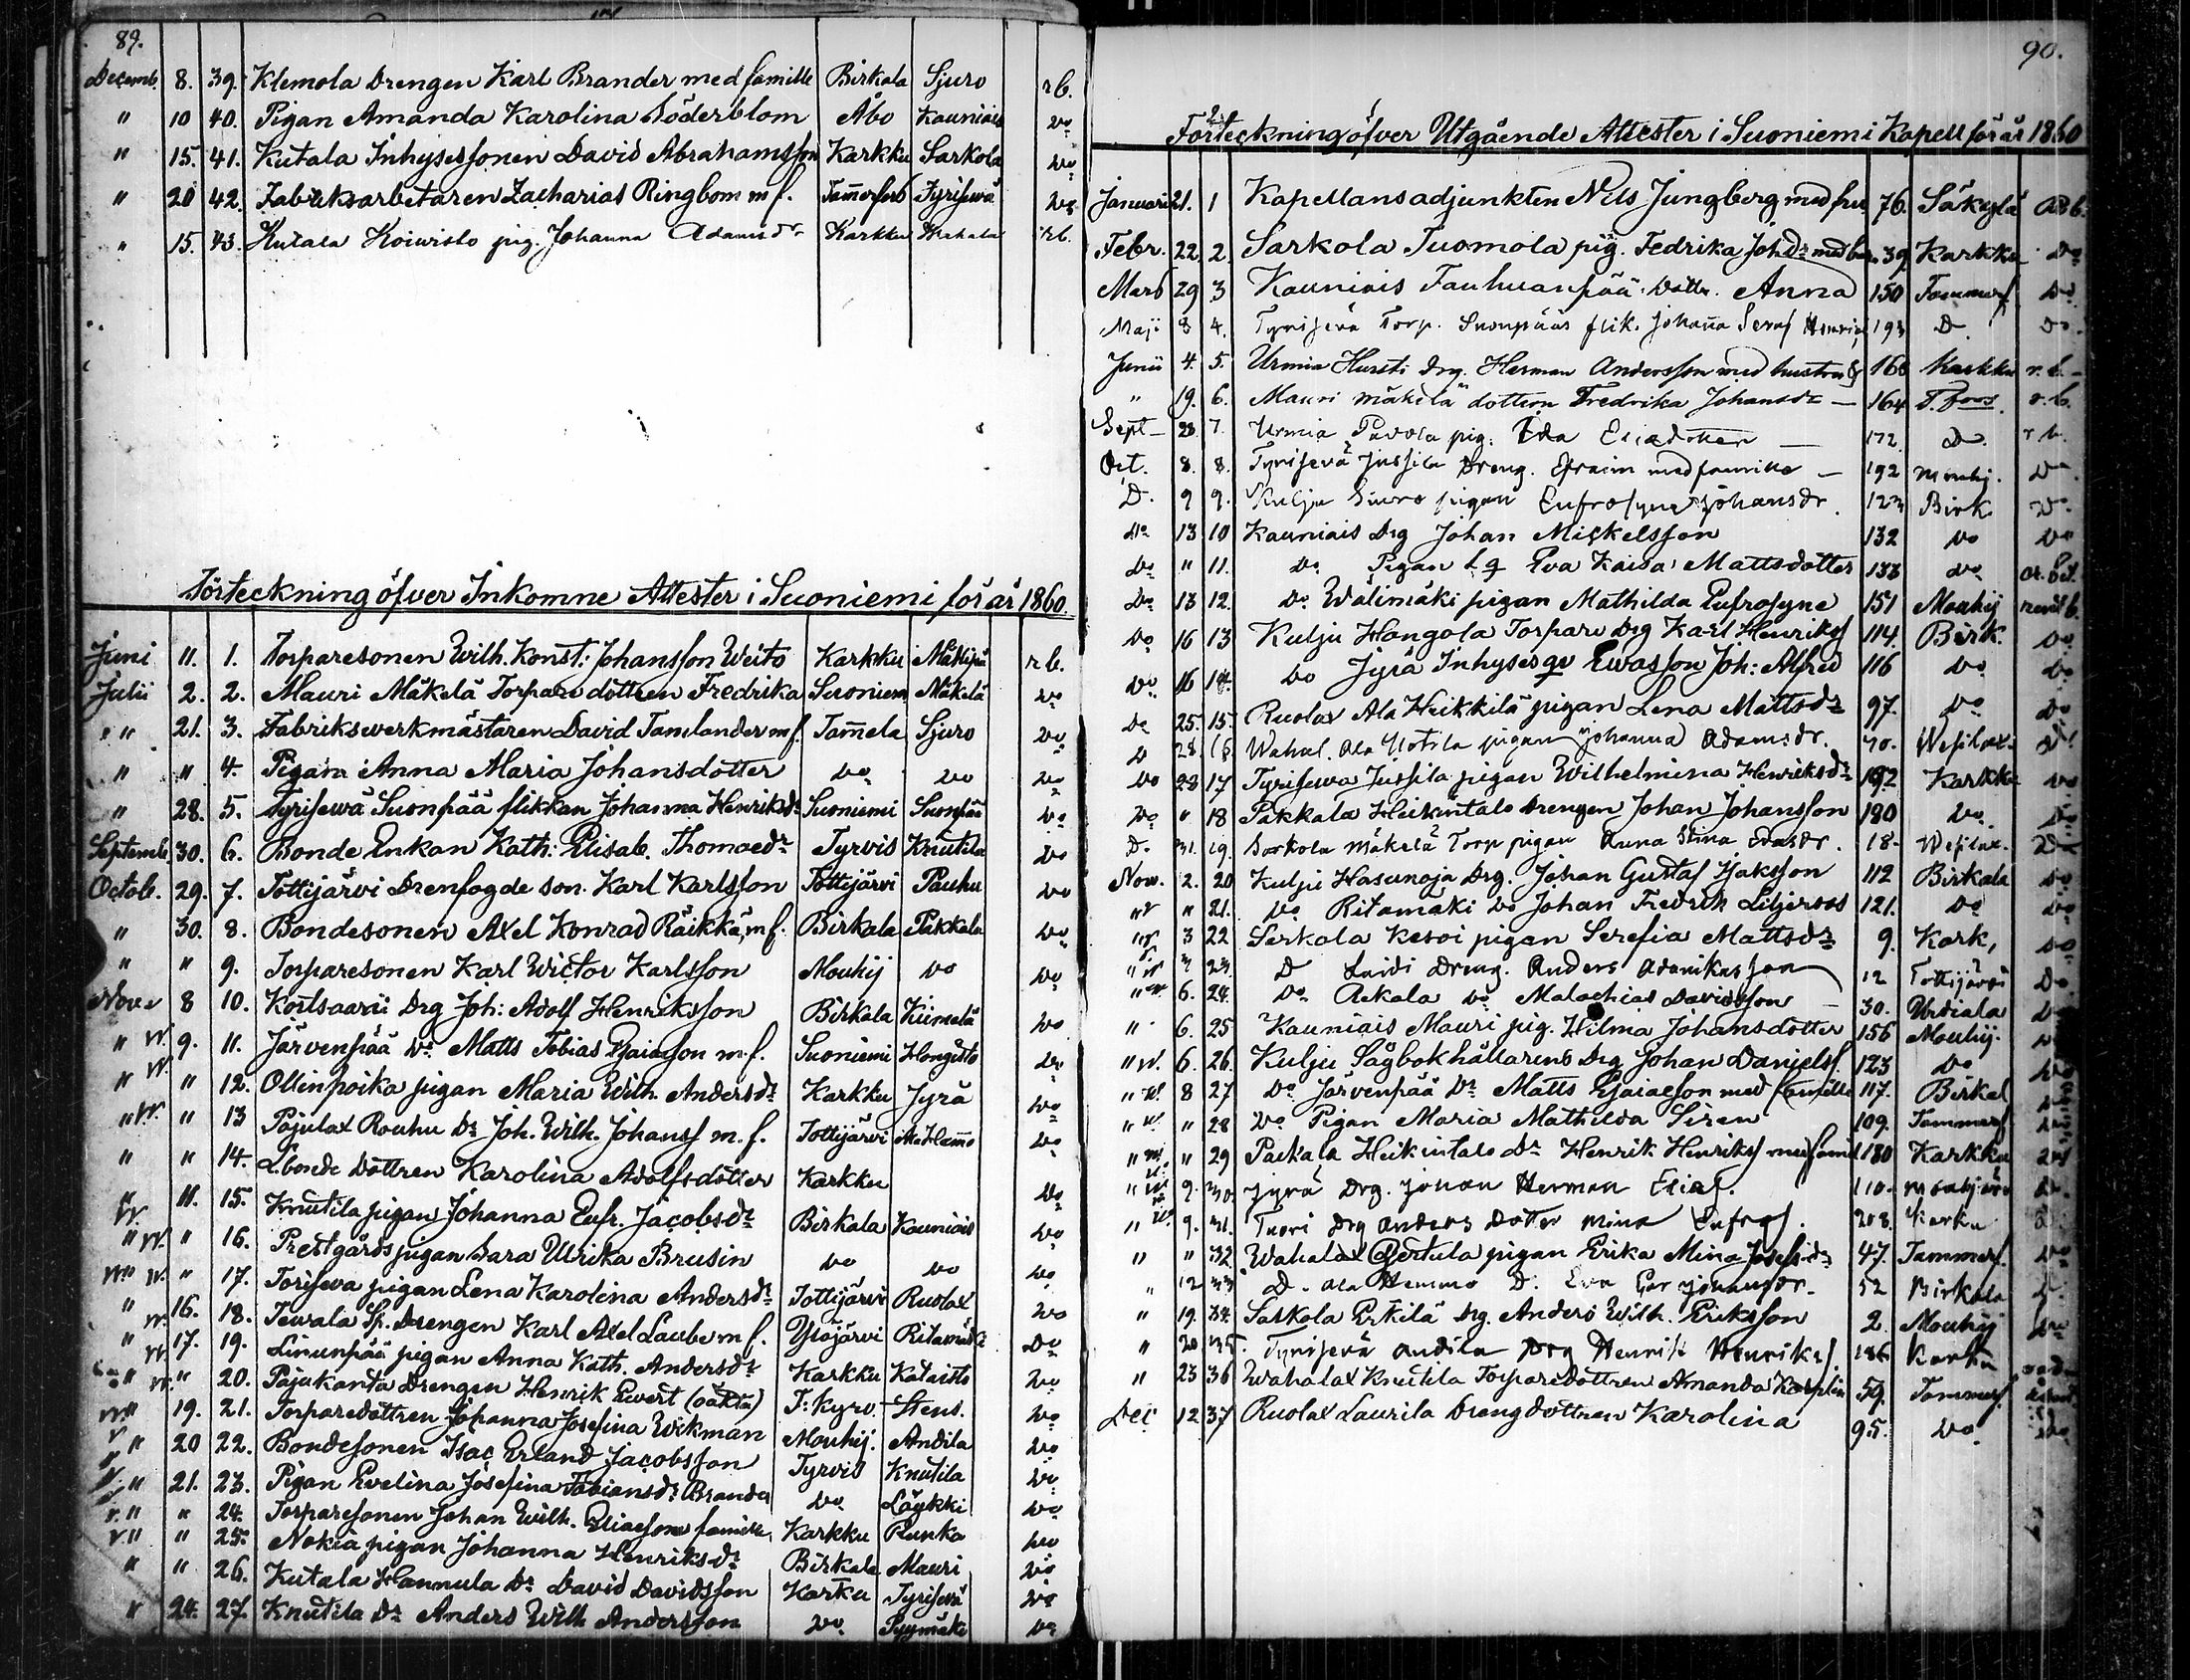 89.
Decemb. 8. 39. Klemola Drengen Karl Brander med famille Birkala Sjuro rb.
" 10 40. Pigan Amanda Karolina Söderblom Åbo Kauniais Do
" 15. 41. Kutala Inhysessonen David Abrahamsson Karkku Sarkola Do
" 20 42. Fabriksarbetaren Zacharias Ringbom m f. Tamerfors Tyrisevä Do
" 15. 43. Kutala Koivisto pig. Johanna Adamsdr Karkku rb.
Förteckning öfver Inkomne Attester i Suoniemi för år 1860.
Juni 11. 1. Torparesonen Wilh. Konst: Johansson Weito Karkku rb.
Julii 2. 2. Mauri Mäkelä Torpare dottren Fredrika Suoniemi Mäkelä Do
" " 21. 3. Fabrikswerkmästaren David Tamlander m f. Tamela Sjuro Do
" " 4. Pigan Anna Maria Johansdotter Do Do Do
" 28. 5. Tyrisewä Suonpää flikkan Johanna Henriksdr Suoniemi Suonpää Do
Septemb. 30. 6. Bonde Enkan Kath: Elisab. Thomaedr Tyrvis Knutila Do
Octob. 29. 7. Tottijärvi Drenfogde son Karl Karlsson Tottijärvi Pauhu Do
" 30. 8. Bondesonen Axel Konrad Räikkä m f. Birkala Pakkala Do
" " 9. Torparesonen Karl Wictor Karlsson Mouhij Do Do
Nov. 8 10. Koitsaarii Drg Joh: Adolf Henriksson Birkala Kiimelä Do
" 9. 11. Järvenpää Do Matts Tobias Esaiason m. f. Suoniemi Hongisto Do
" " 12. Ollinpoika pigan Maria Wilh. Andersdr Karkku Jyrä Do
" " 13 Pajulax Rouhu Dr Joh. Wilh. Johanss m. f. Tottijärvi Ala Hammo Do
" " 14. L. bonde Dottren Karolina Adolfsdotter Karkku Do
" 11. 15. Knutila pigan Johanna Eufr. Jacobsdr Birkala Kauniais Do
" " 16. Prestgårds pigan Sara Ulrika Brusin Do Do Do
" " 17. Toriseva pigan Lena Karolina Andersdr Tottijärvi Ruolax Do
" 16. 18. Teurala Sp. Drengen Karl Axel Laube m f. Ylöjärvi Ritamäki Do
" 17. 19. Linunpää pigan Anna Kath. Andersdr Karkku Kataisto Do
" " 20. Pajukanta Drengen Henrik Evert (oäkta) F: Kyro Stens. Do
" 19. 21. Torparedottren Johanna Josefina Wikman Mouhij. Andila Do
" 20 22. Bondesonen Isac Erland Jacobsson Tyrvis Knutila Do
" 21. 23. Pigan Evelina Josefina Tobiansdr Brander Do Läykki Do
" " 24. Torparesonen Johan Wilh. Eliaeson famille Karkku Runka Do
" " 25. Nokia pigan Johanna Henriksdr Birkala Mauri Do
" " 26. Kutala Hannula Dr David Davidsson Karku Tyrisevä Do
" 24. 27. Knutila Dr Anders Wilh Andersson Do Pyymäki Do
90.
Förteckning öfver Utgående Attester i Suoniemi Kapell för år 1860
Januari 21. 1 Kapellansadjunkten Nils Jungberg med fru 76. Säkylä
Febr. 22. 2. Sarkola Tuomola pig. Fedrika Johdr med barn 39 Karkku Do
Mars 29 3 Kauniais Tauhuanpää dottr. Anna 150 Tammerf. Do
Maji 8 4. Tyrisevä Torp. Suonpääs flik. Johanna Seraf Henrics 193 D Do
Junii 4. 5. Urmia Hursti drg. Herman Andersson med hustru 166 Karkku r. b.
" 19. 6. Mauri Mäkelä dottern Fredrika Johansdr 164 T.fors. r. b.
Sept 23 7. Urmia Pavola pig. Ida Eliaedotter 172 D. r b.
Oct. 8. 8. Tyrisevä Jussila Dreng. Efraim med familie 192 Mouhij. Do
D. 9 9. Kulju Siuro pigan Eufrosyne Johansdr. 123 Birk. Do
Do 13 10 Kauniais Drg Johan Mickelsson 132 Do Do
Do " 11. Do Pigan Eva Kaisa Mattsdotter 133 Do
Do 13 12. Do Wälimäki pigan Mathilda Eufrosyne 151 Mouhij
Do 16 13 Kulju Hongola Torpare Drg Karl Henrikss 114. Birk. Do
Do 16 14. Do Jyrä Inhyses qv Ewas son Joh: Alfred 116 Do Do
Do 25. 15. Ruolax Ala Heikkilä pigan Lena Mattsdr 97. Do Do
D 28 16 Wahal. Ala Yotila pigan Johanna Adamsdr. 70. Wesilax. D
Do 28 17 Tyrisewa Jussila pigan Wilhelmina Henriksdr 192 Karkku Do
Do " 18 Pakkala Heikintalo Drengen Johan Johansson 180 Do Do
D. 31. 19. Sarkola Mäkelä Torp pigan Anna Stina Evasdr. 18. Wesilax. Do
Nov. 2. 20 Kulju Hasunoja Drg. Johan Gustaf Isaksson 112 Birkala Do
" " 21. Do Ritamäki Do Johan Fredrik Liljeroos 121. Do Do
" 3 22 Sarkola Kesoi pigan Serefia Mattsdr 9. Kark, Do
" 3 23. D Laidi Dreng. Anders Adamsson 12 Tottijärvi Do.
" 6. 24. Do Ackala Do Malachias Davidsson 30. Urdiala Do
" 6. 25 Kauniais Mauri pig. Hilma Johansdotter 156 Mouhij. Do
" 6. 26. Kulju Sågbokhållarens Drg Johan Danielss. 123 Do Do
" 8 27 Do Järvenpää Dr Matts Esaiaeson med familie 117. Birkal Do
" " 28 Do Pigan Maria Mathilda Siren 109. Tammerf. Do
" " 29 Packala Heikintalo Dr Henrik Henrikss med famil 180 Karkku Do
" 9. 30. Jyrä Drg. Johan Herman Eliass. 110. Mouhijärvi Do
" 9. 31. Tuori Drg Anders Dotter Mina Eufros. 208. Karku Do
" " 32. Wahalax Gertula pigan Erika Mina Josefsdr 47. Tammerf. Do
" 12 33 D. Ala Hammo D. Eva Johansdr. 52 Birkala D.
" 19. 34. Sarkola Erkilä Drg. Anders Wilh. Eriksson 2. Mouhij Do
" 20 35. Tyrisevä Andila Drg Henrik Henrikss. 186 Karku
" 23 36 Wahalax Knutila Torparedottren Amanda Karplin 59. Tammerf.
Dec 12 37 Ruolax Laurila Drengdottren Karolina 95. Do Do